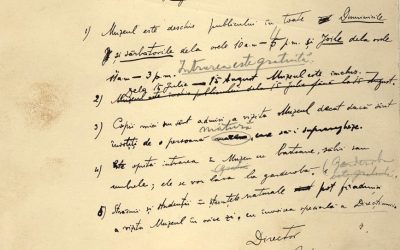 1) Muzeul este deschis publicului in toate Duminicile
și sărbatorile dela orele 10 a.m – 5 p.m. și Joile dela orele
10 a.m – 3 p.m. Intrarea este gratuită.
dela 15 Iulie – 15 August Muzeul este inchis.
2) Muzeul este inchis publicului dela 15 Iulie până la 15 August.
3) Copii mici nu sunt admiși a vizita Muzeul dacat dacă sunt
insoțiți de o persoană matură, care să-i supravegheze.
4) Este oprită intrarea in Muzeu cu bastoane, săbii sau
umbrele; ele se vor lasa la garderobă. (Garderoba este gratuită.)
5) Străinii și studenții in științele naturale pot fi admiși
a vizita Muzeul in orice zi, cu invoirea specială a Direcțiunii
Director